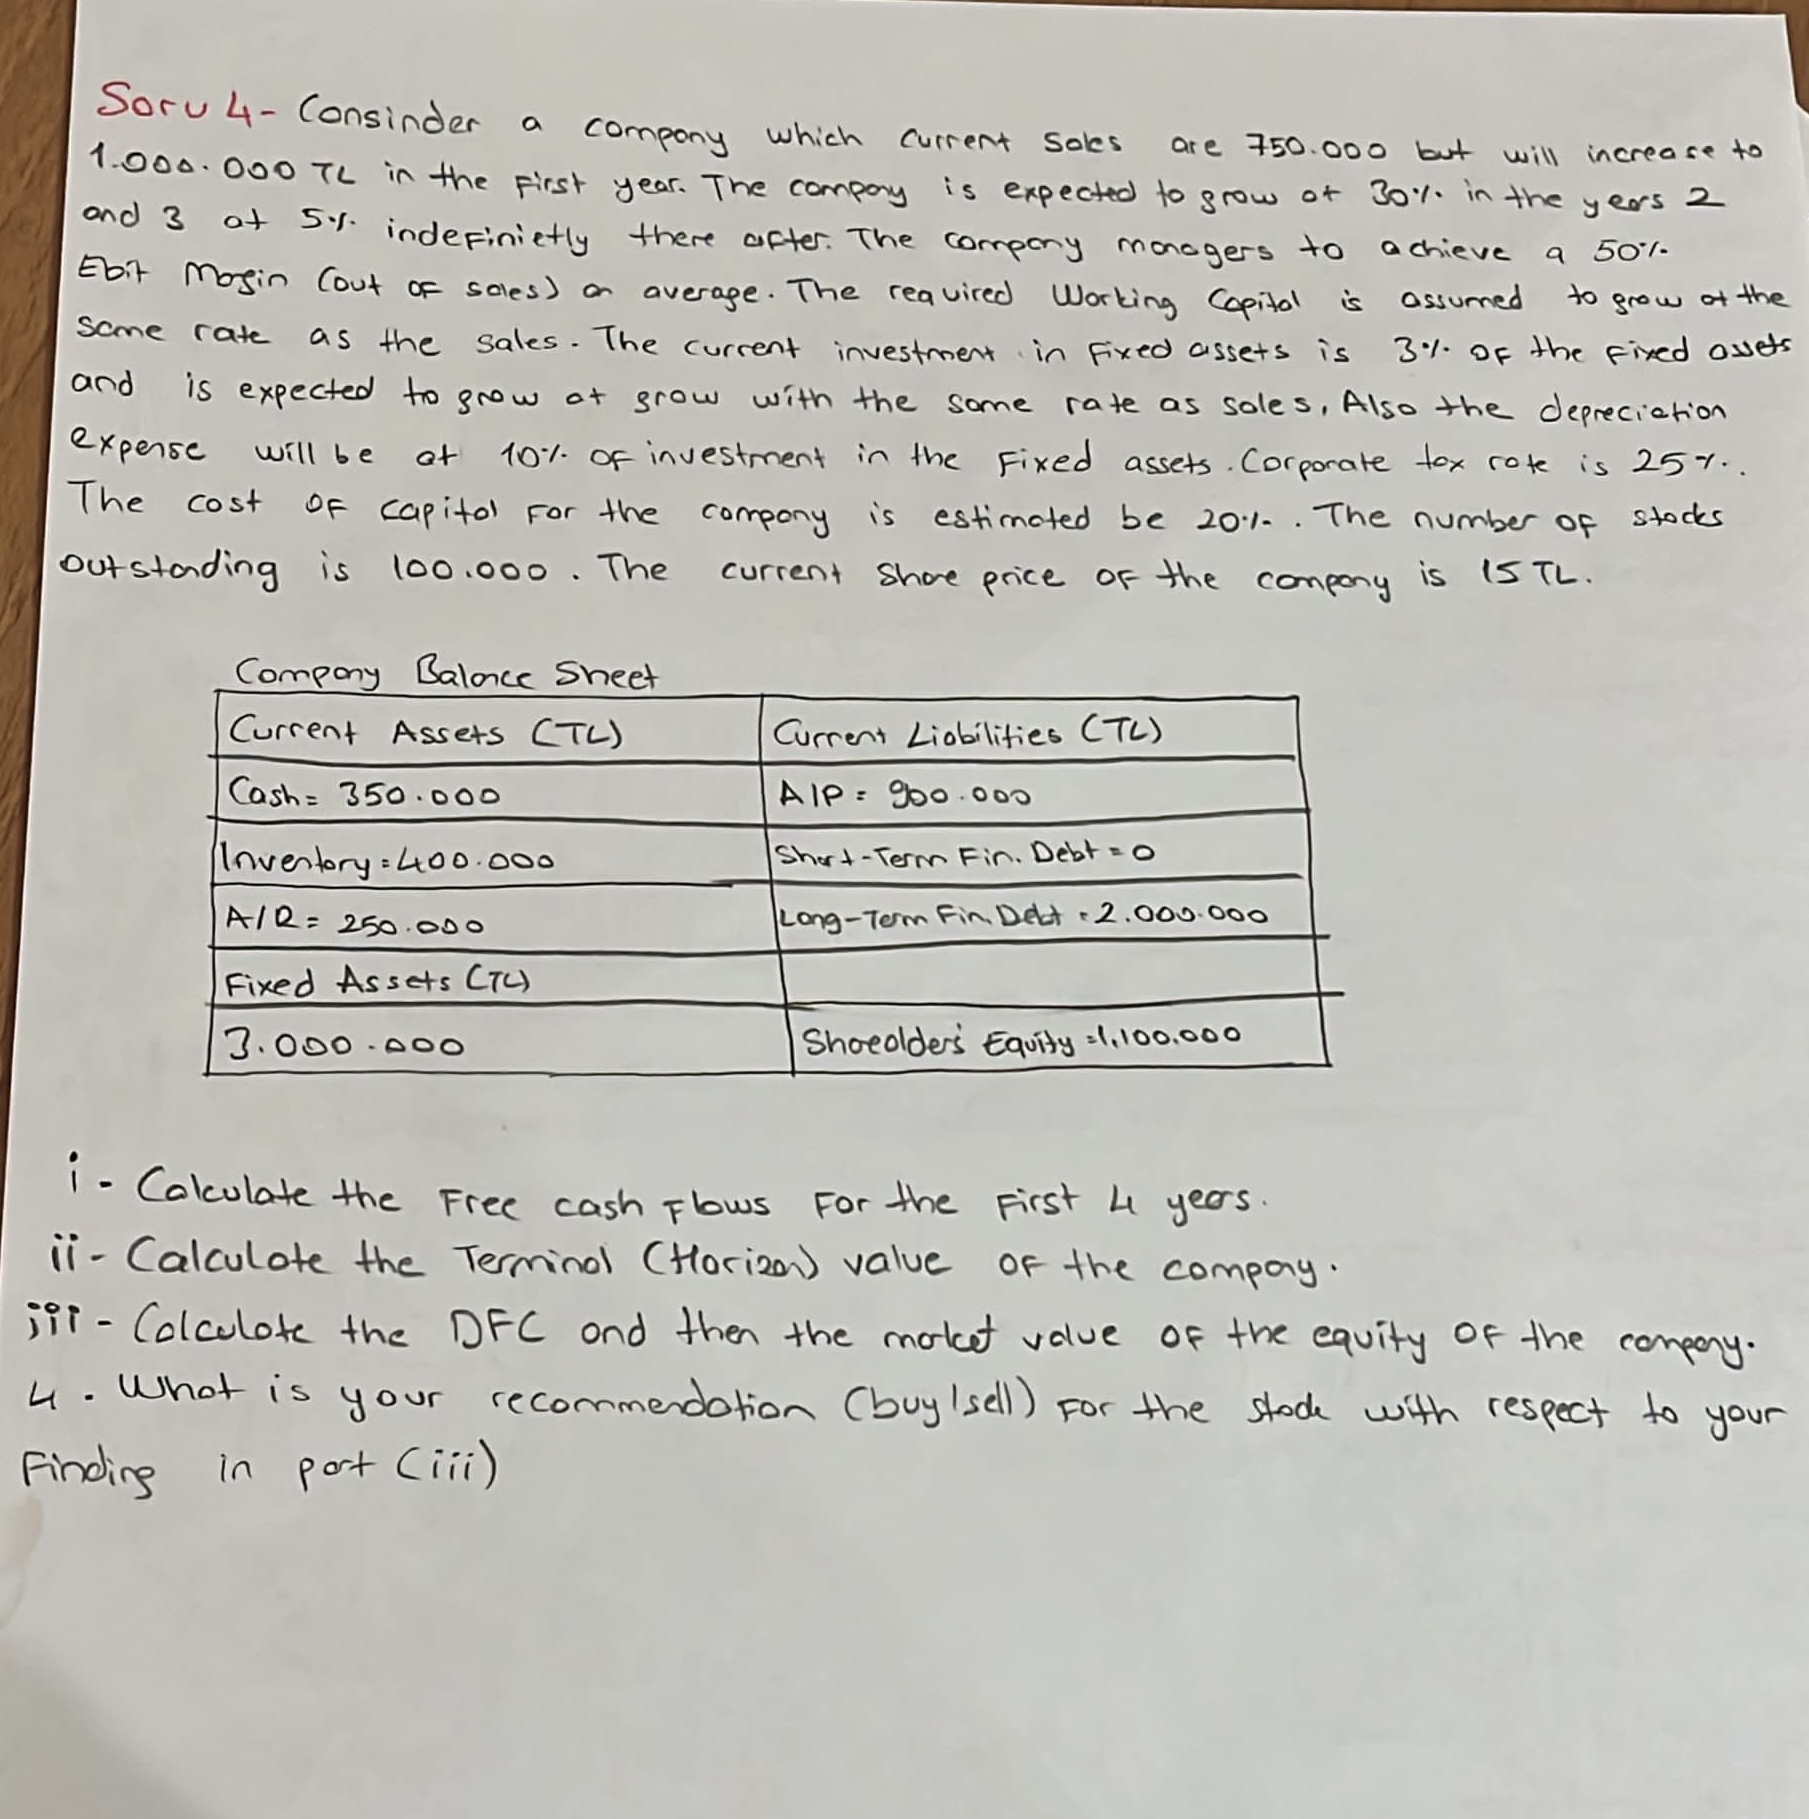 Soru 4- Consinder a company which current sales are 750.000 but will increase to
1.000.000 TL in the first year. The company is expected to grow at 30% in the yers 2
and 3 at 5% indefinietly there after. The company managers to achieve a 50%
Ebit Margin (out of sales) on average. The required Working Capital is assumed to grow at the
same rate as the sales. The current investment in fixed assets is 3% of the fixed assets
and is expected to grow at grow with the same rate as sales, Also the depreciation
expense will be at 10% of investment in the fixed assets. Corporate tax rate is 25%.
The cost of capital for the company is estimated be 20%. The number of stocks
outstanding is 100.000. The current share price of the company is 15 TL.
Company Balance Sheet
Current Assets (TL) Current Liabilities (TL)
Cash= 350.000 A/P= 900.000
Inventory=400.000 Short-Term Fin. Debt=0
A/R= 250.000 Long-Term Fin. Debt=2.000.000
Fixed Assets (TL)
3.000.000 Shareolders' Equity=1,100.000
i- Calculate the free cash flows for the first 4 years.
ii- Calculate the Terminal (Horizon) value of the company.
iii- Calculate the DFC and then the market value of the equity of the company.
4. What is your recommendation (buy/sell) for the stock with respect to your
finding in part (iii)